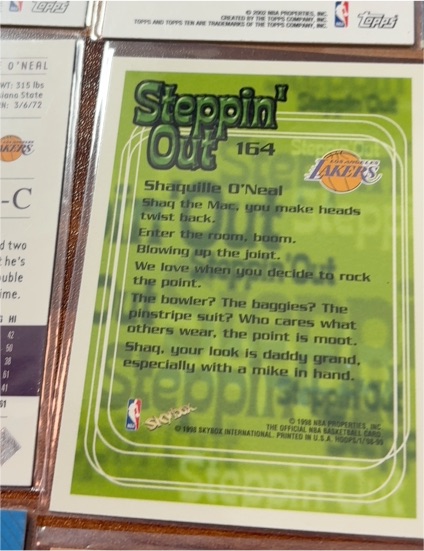 Topps
© 2002 NBA PROPERTIES, INC.
CREATED BY THE TOPPS COMPANY, INC.
TOPPS AND TOPPS TEN ARE TRADEMARKS OF THE TOPPS COMPANY, INC.
Topps
O'NEAL
WT: 315 lbs
iana State
N: 3/6/72
-C
d two
t he's
ouble
ime.
HI
42
50
38
61
41
61
Steppin'
Out
164
LOS ANGELES
LAKERS
Shaquille O'Neal
Shaq the Mac, you make heads
twist back.
Enter the room, boom.
Blowing up the joint.
We love when you decide to rock
the point.
The bowler? The baggies? The
pinstripe suit? Who cares what
others wear, the point is moot.
Shaq, your look is daddy grand,
especially with a mike in hand.
NBA
SKYBOX
© 1998 NBA PROPERTIES, INC.
THE OFFICIAL NBA BASKETBALL CARD.
© 1998 SKYBOX INTERNATIONAL. PRINTED IN U.S.A. HOOPS/1'98-99